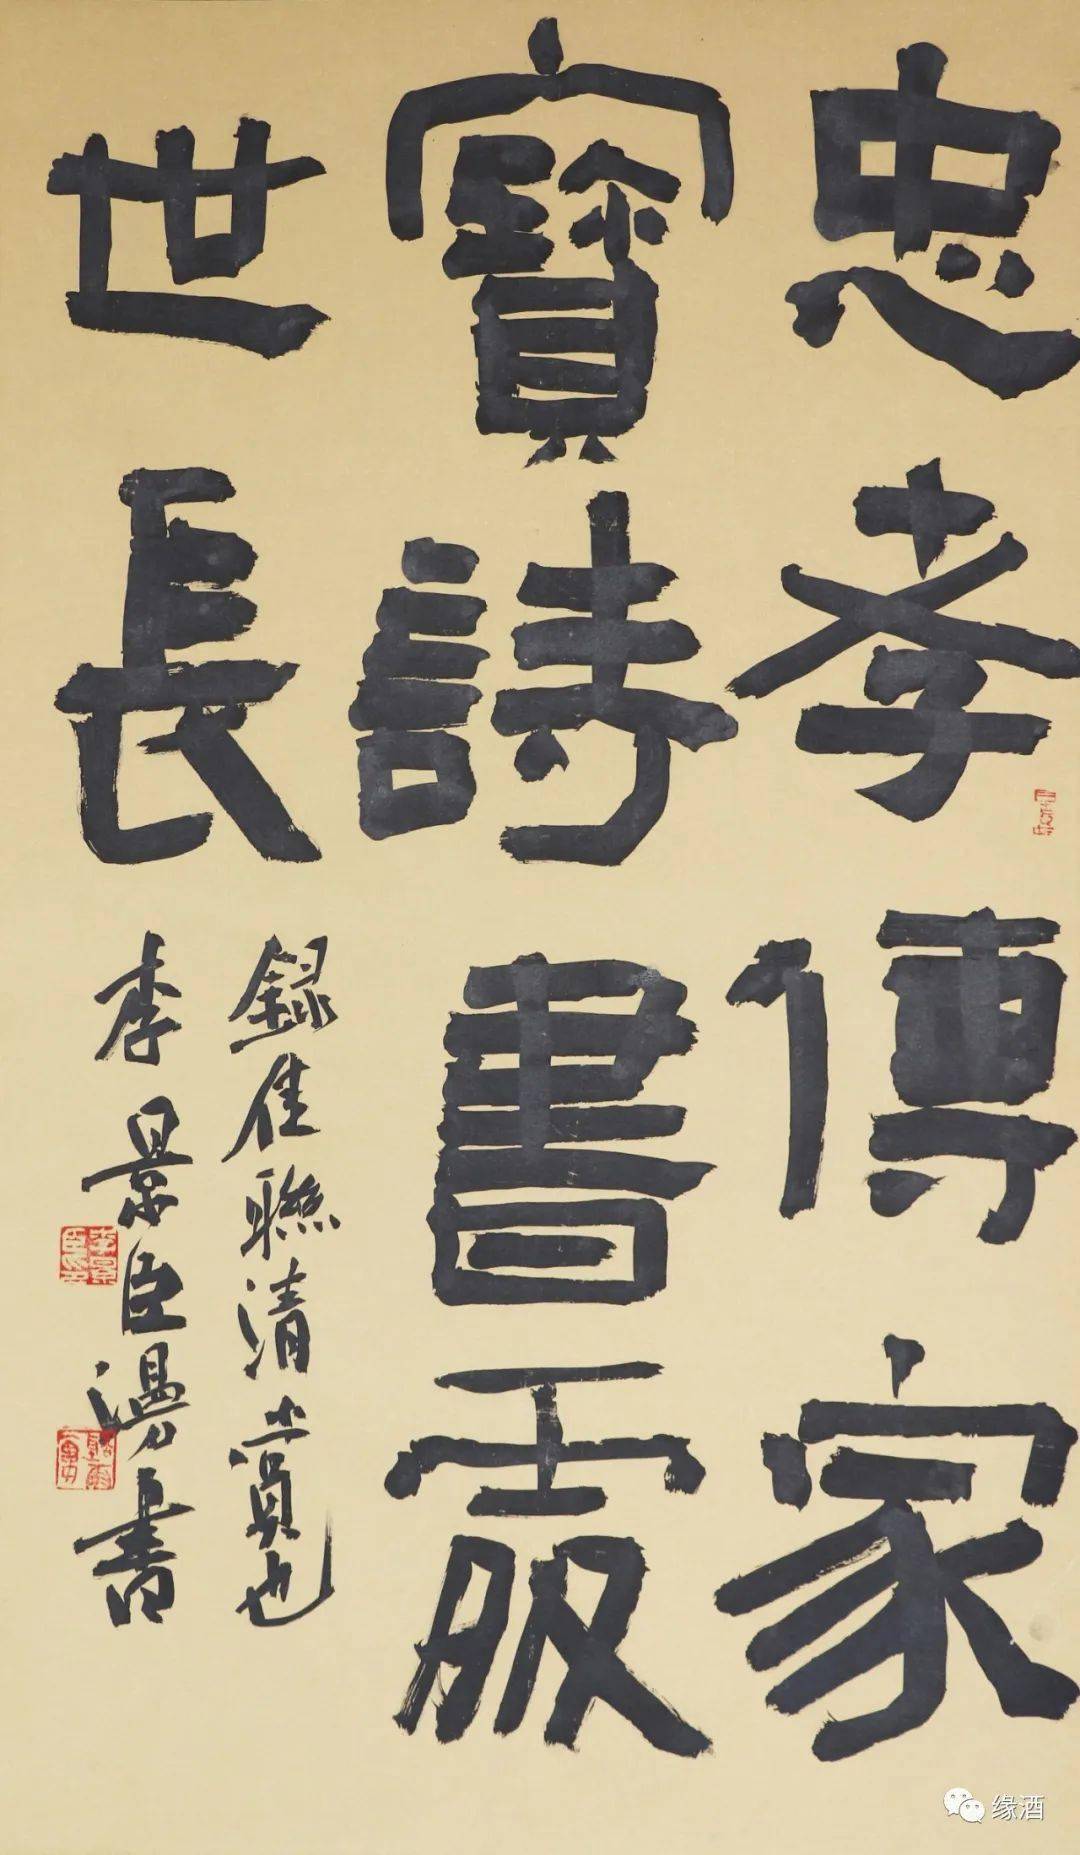 忠孝傳家
寶詩書處
世長
錄佳聯清賞也
李景臣漫書
缘酒